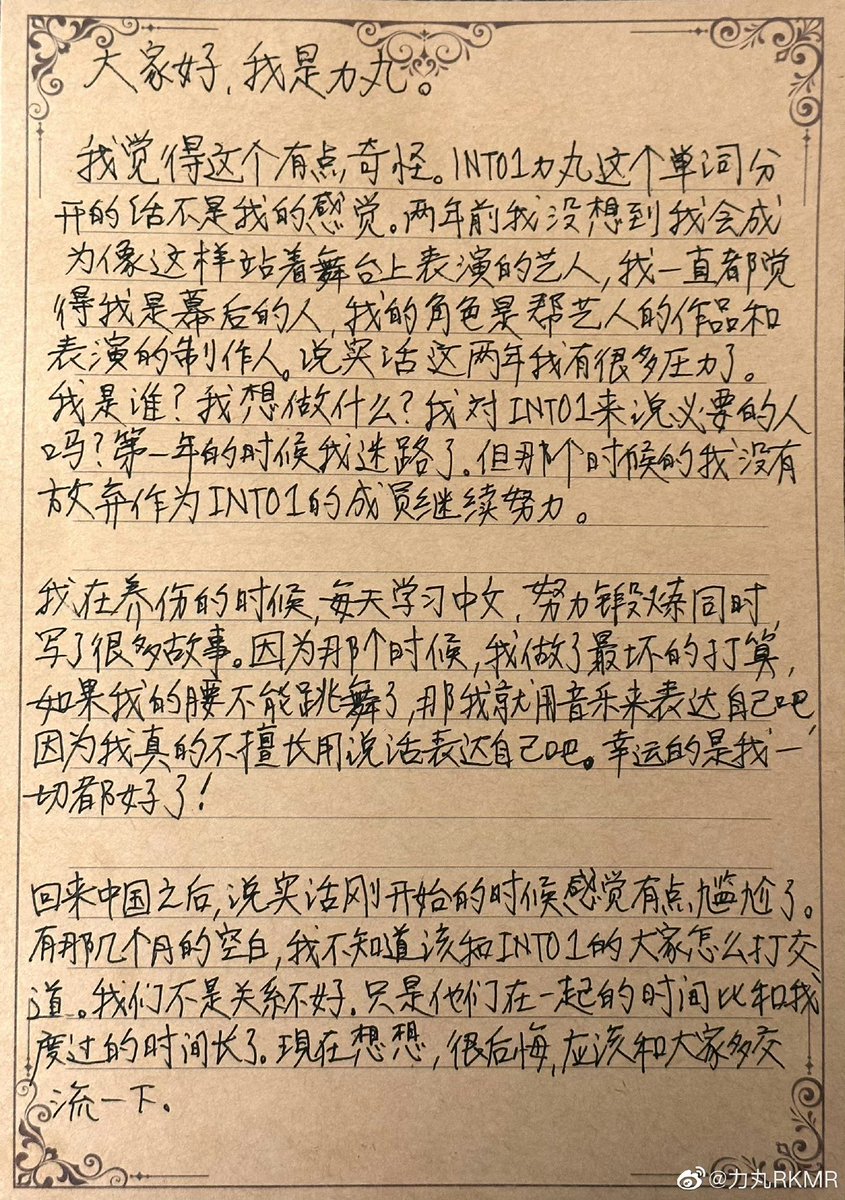 大家好,我是力丸。
我觉得这个有点奇怪。INTO1力丸这个单词分
开的话不是我的感觉。两年前我没想到我会成
为像这样站着舞台上表演的艺人,我一直都觉
得我是幕后的人,我的角色是帮艺人的作品和
表演的制作人。说实话这两年我有很多压力了。
我是谁?我想做什么?我对INTO1来说必要的人
吗?第一年的时候我迷路了。但那个时候的我没有
放弃作为INTO1的成员继续努力。
我在养伤的时候,每天学习中文,努力锻炼同时,
写了很多故事。因为那个时候,我做了最坏的打算,
如果我的腰不能跳舞了,那我就用音乐来表达自己吧
因为我真的不擅长用说话表达自己吧。幸运的是我一
切都好了!
回来中国之后,说实话刚开始的时候感觉有点尴尬了。
有那几个月的空白,我不知道该和INTO1的大家怎么打交
道。我们不是关系不好.只是他们在一起的时间比和我
度过的时间长了。現在想想,很后悔,应该和大家多交
流一下.
@力丸RKMR